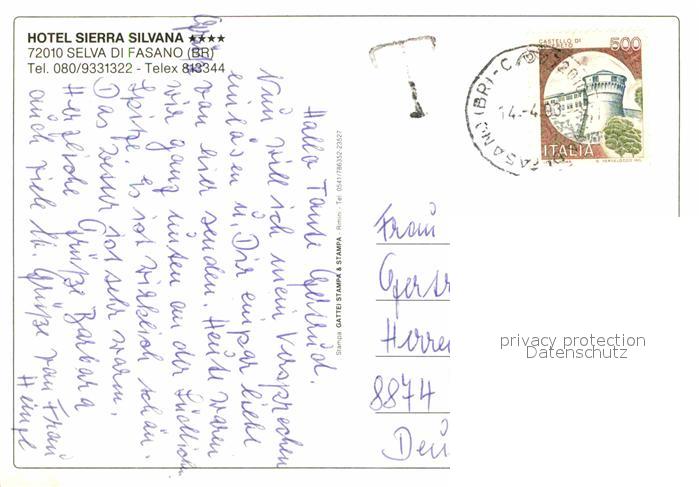 HOTEL SIERRA SILVANA ★★★★
72010 SELVA DI FASANO (BR)
Tel. 080/9331322 - Telex 813344
T
CASTELLO DI
500
ITALIA
FASANO (BR) - C
14.-4.
Hallo Tante Gertrud.
Nun will ich mein Versprechen
einlösen u. Dir ein paar liebe
Grüße von hier senden. Heute waren
wir ganz unten an der südlichen
Spitze. Es ist wirklich schön.
Das Wetter ist sehr warm.
Herzliche Grüße Barbara
auch viele lb. Grüße von Frau
Stampa GATTEI STAMPA & STAMPA - Rimini - Tel. 0541/786352-23527
Frau
Gertr
Herre
8874
Deu
privacy protection
Datenschutz